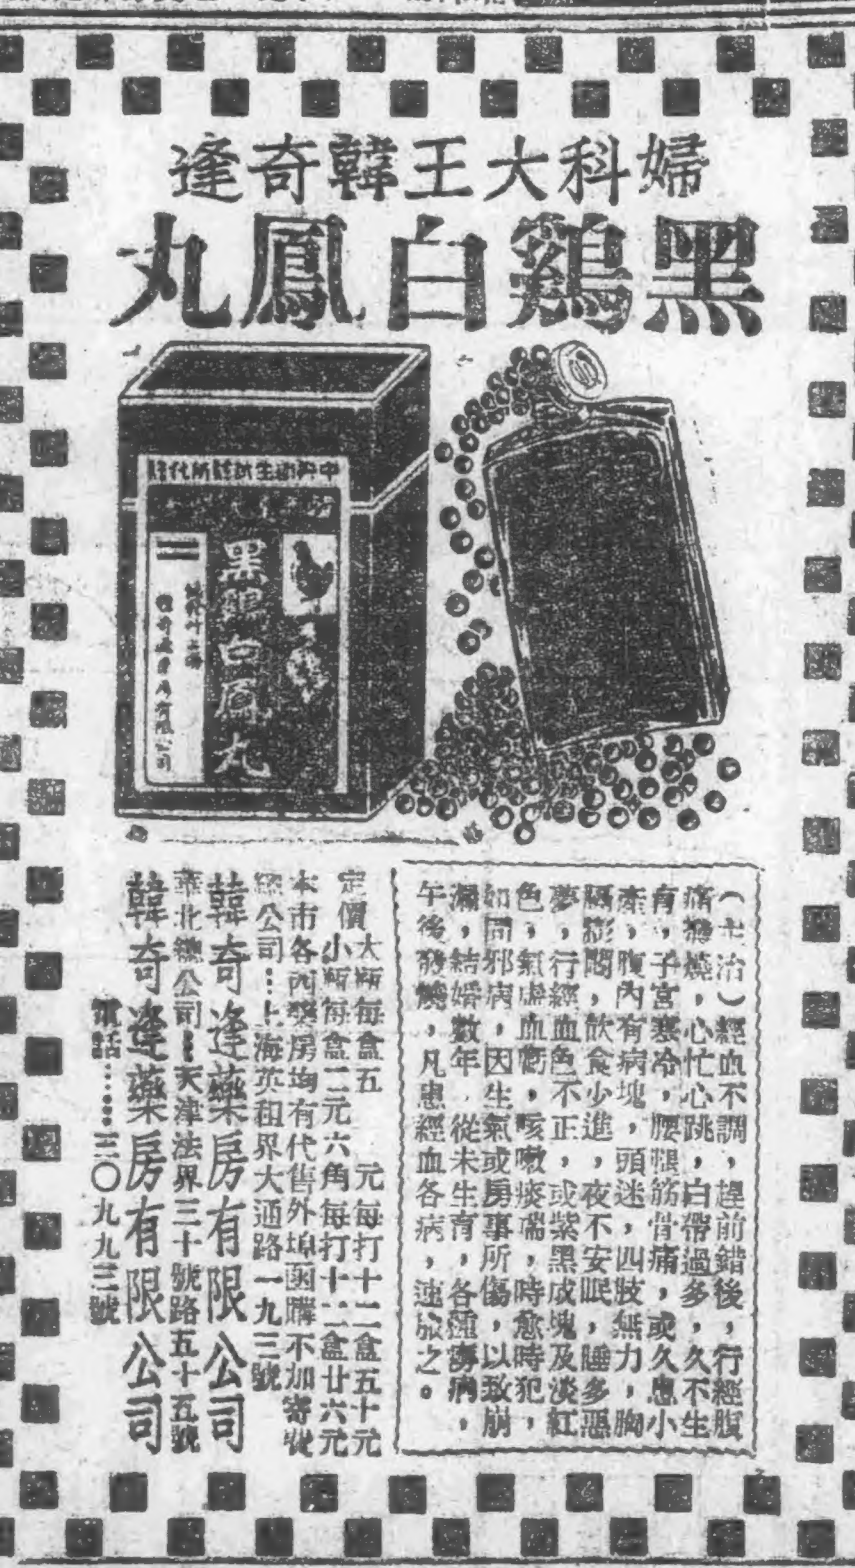 婦科大王韓奇逢
黑鷄白鳳丸
黑鷄白鳳丸
（主治）經血不調，趕前錯後，行經腹
痛發燒，心忙心跳，白帶過多，久不生
育，子宮寒冷，腰腿筋骨痛，或久患小
產，腹內有病塊，頭迷，四肢無力，胸
膈膨悶，飲食少進，夜不安眠，睡多惡
夢，行經血色不正，或紫黑成塊及淡紅
色，氣虛血虧，咳嗽痰喘，時愈時犯，
如同邪病，因生氣或房事所傷，以致崩
漏，結婚數年，從未生育，各種癆病，
午後發燒，凡患經血各病，速服之。
定價
大瓶每盒五元每打十二盒五十元
小瓶每盒二元六角每打十二盒廿六元
本市各西藥房均有代售外埠函購不加寄費
總公司…上海英租界大通路一九三號
韓奇逢藥房有限公司
華北總公司…天津法界三十號路五十五號
韓奇逢藥房有限公司
電話……三〇九九三號